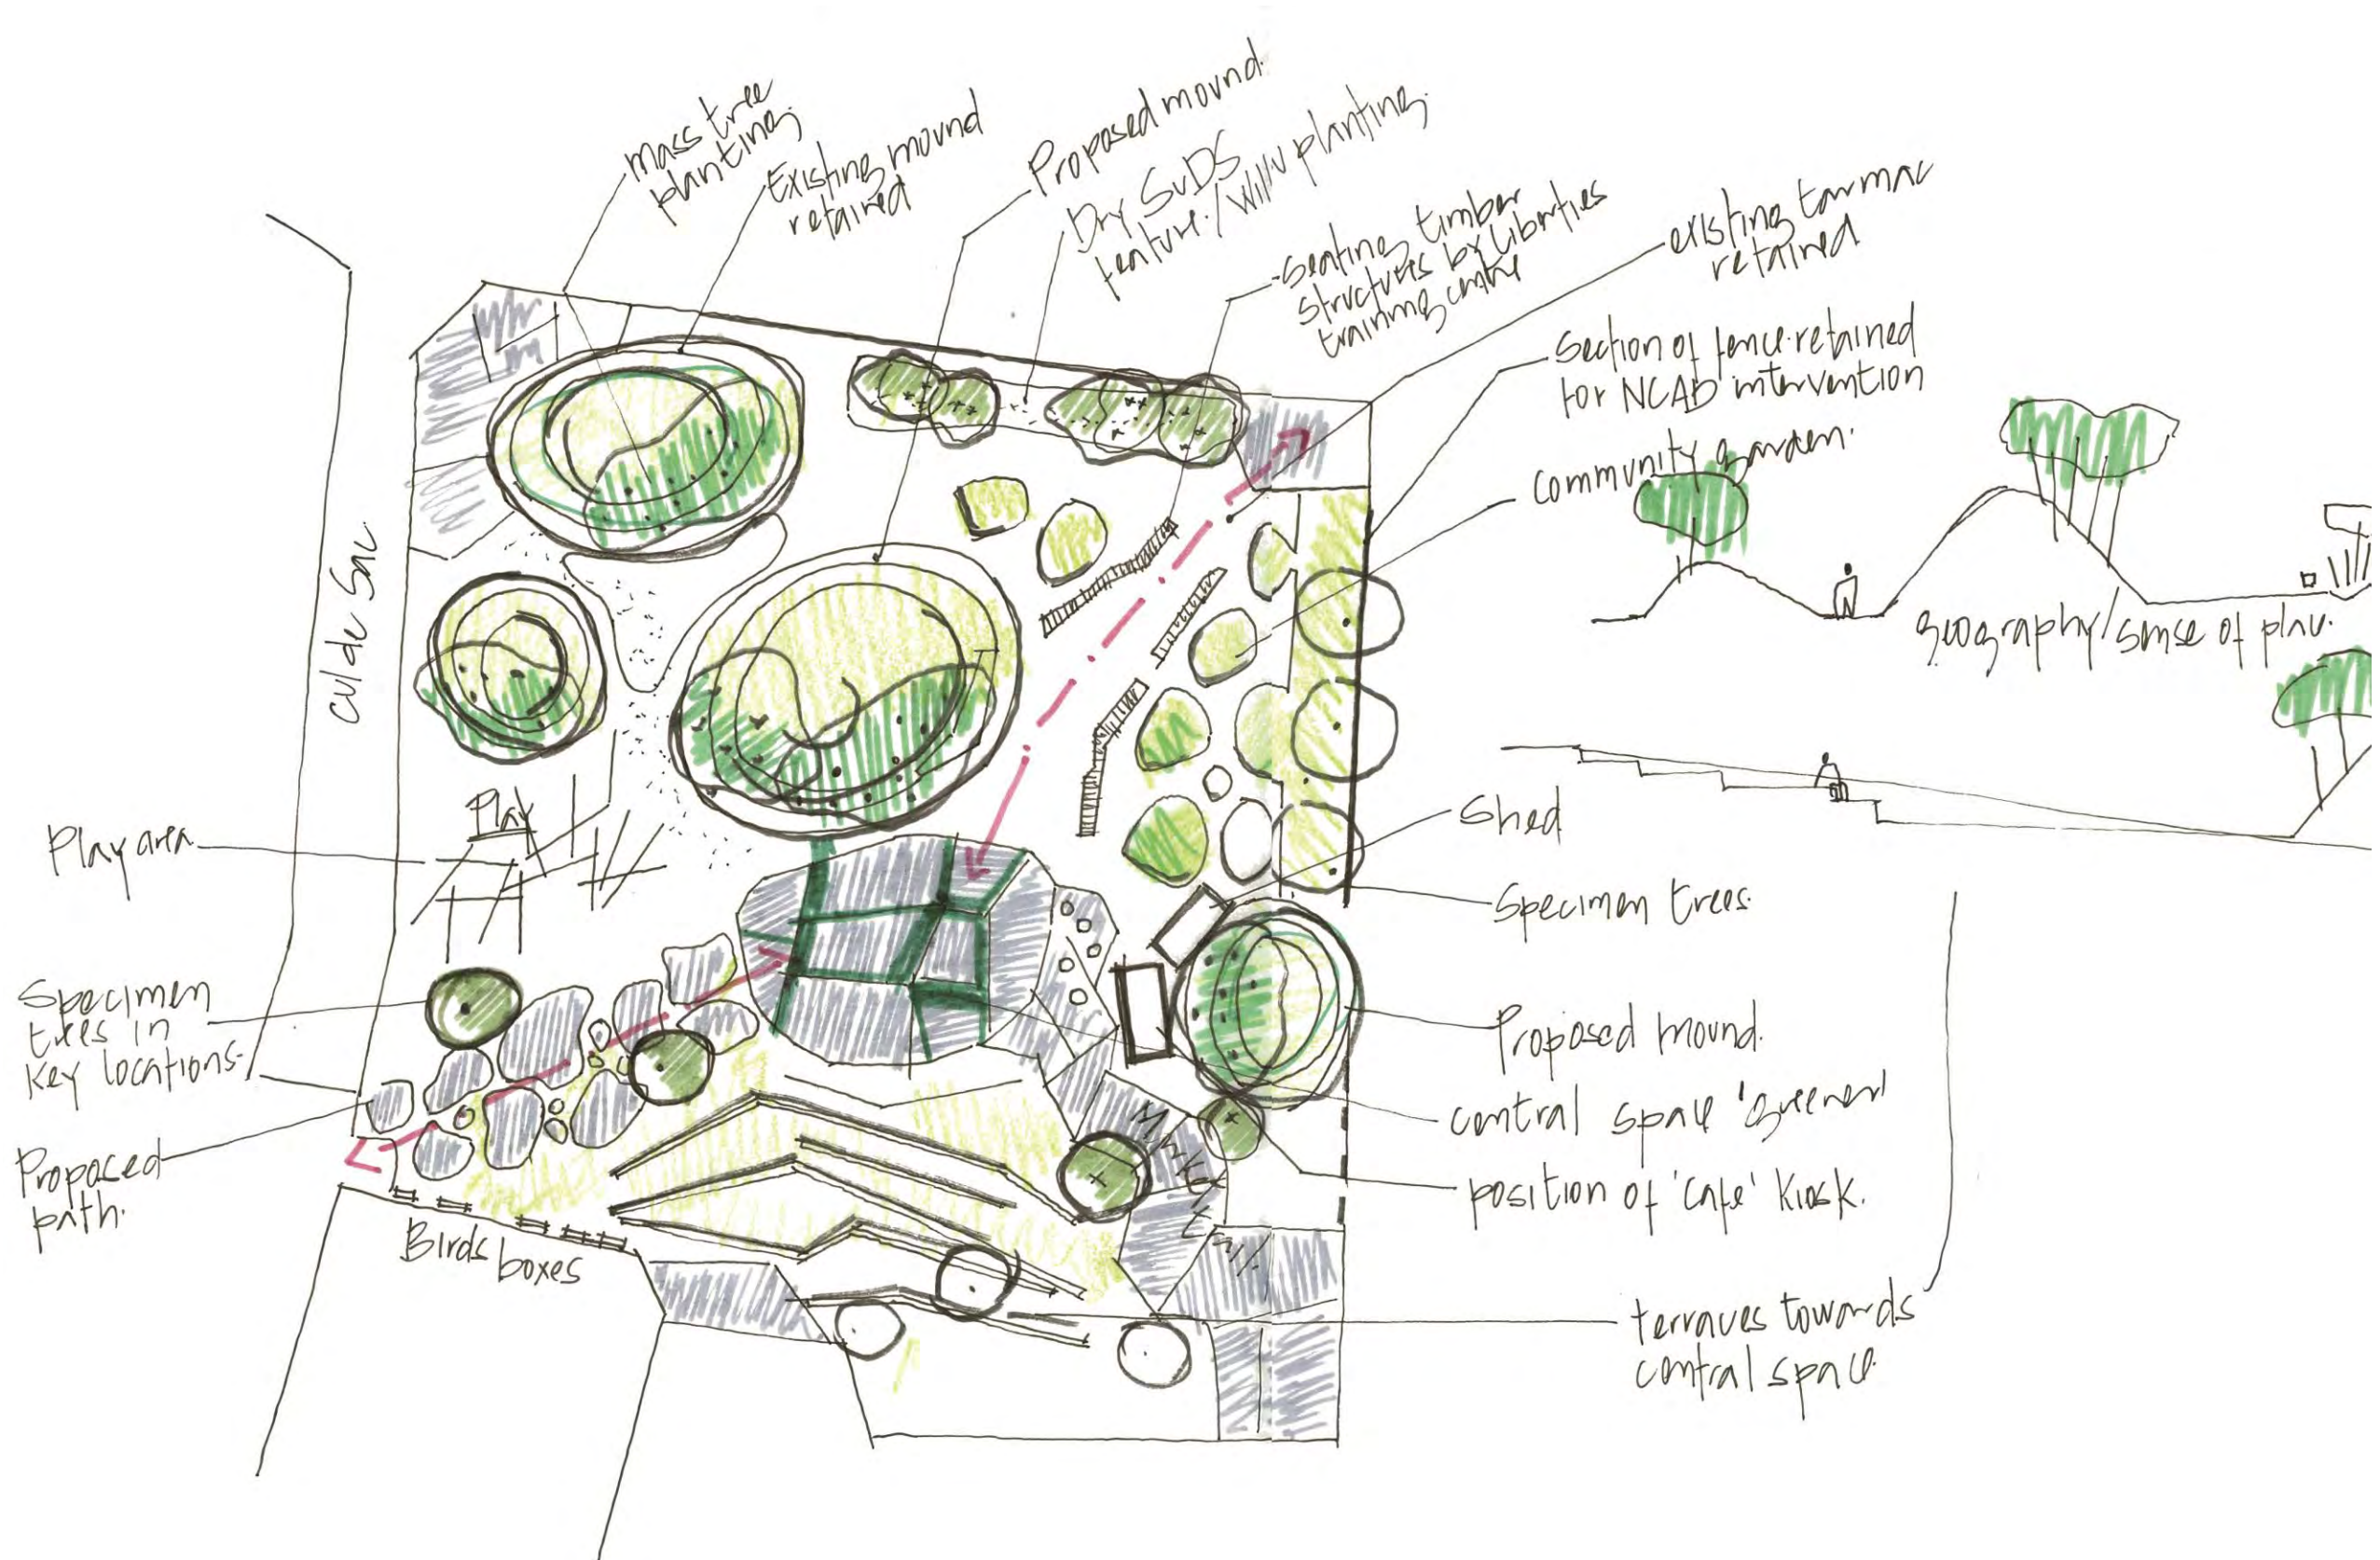 mass tree
planting.
Existing mound
retained
Proposed mound.
Dry SuDS
feature./willow planting.
Seating timber
structures by liberties
training centre
existing tarmac
retained
Section of fence retained
for NCAD intervention
Community garden.
geography/sense of play.
Cul de Sac
Play
Play area
Specimen
trees in
key locations.
Proposed
path.
Birds boxes
Shed
Specimen trees.
Proposed mound.
central space 'greener'
position of 'cafe' Kiosk.
terraces towards
central space.